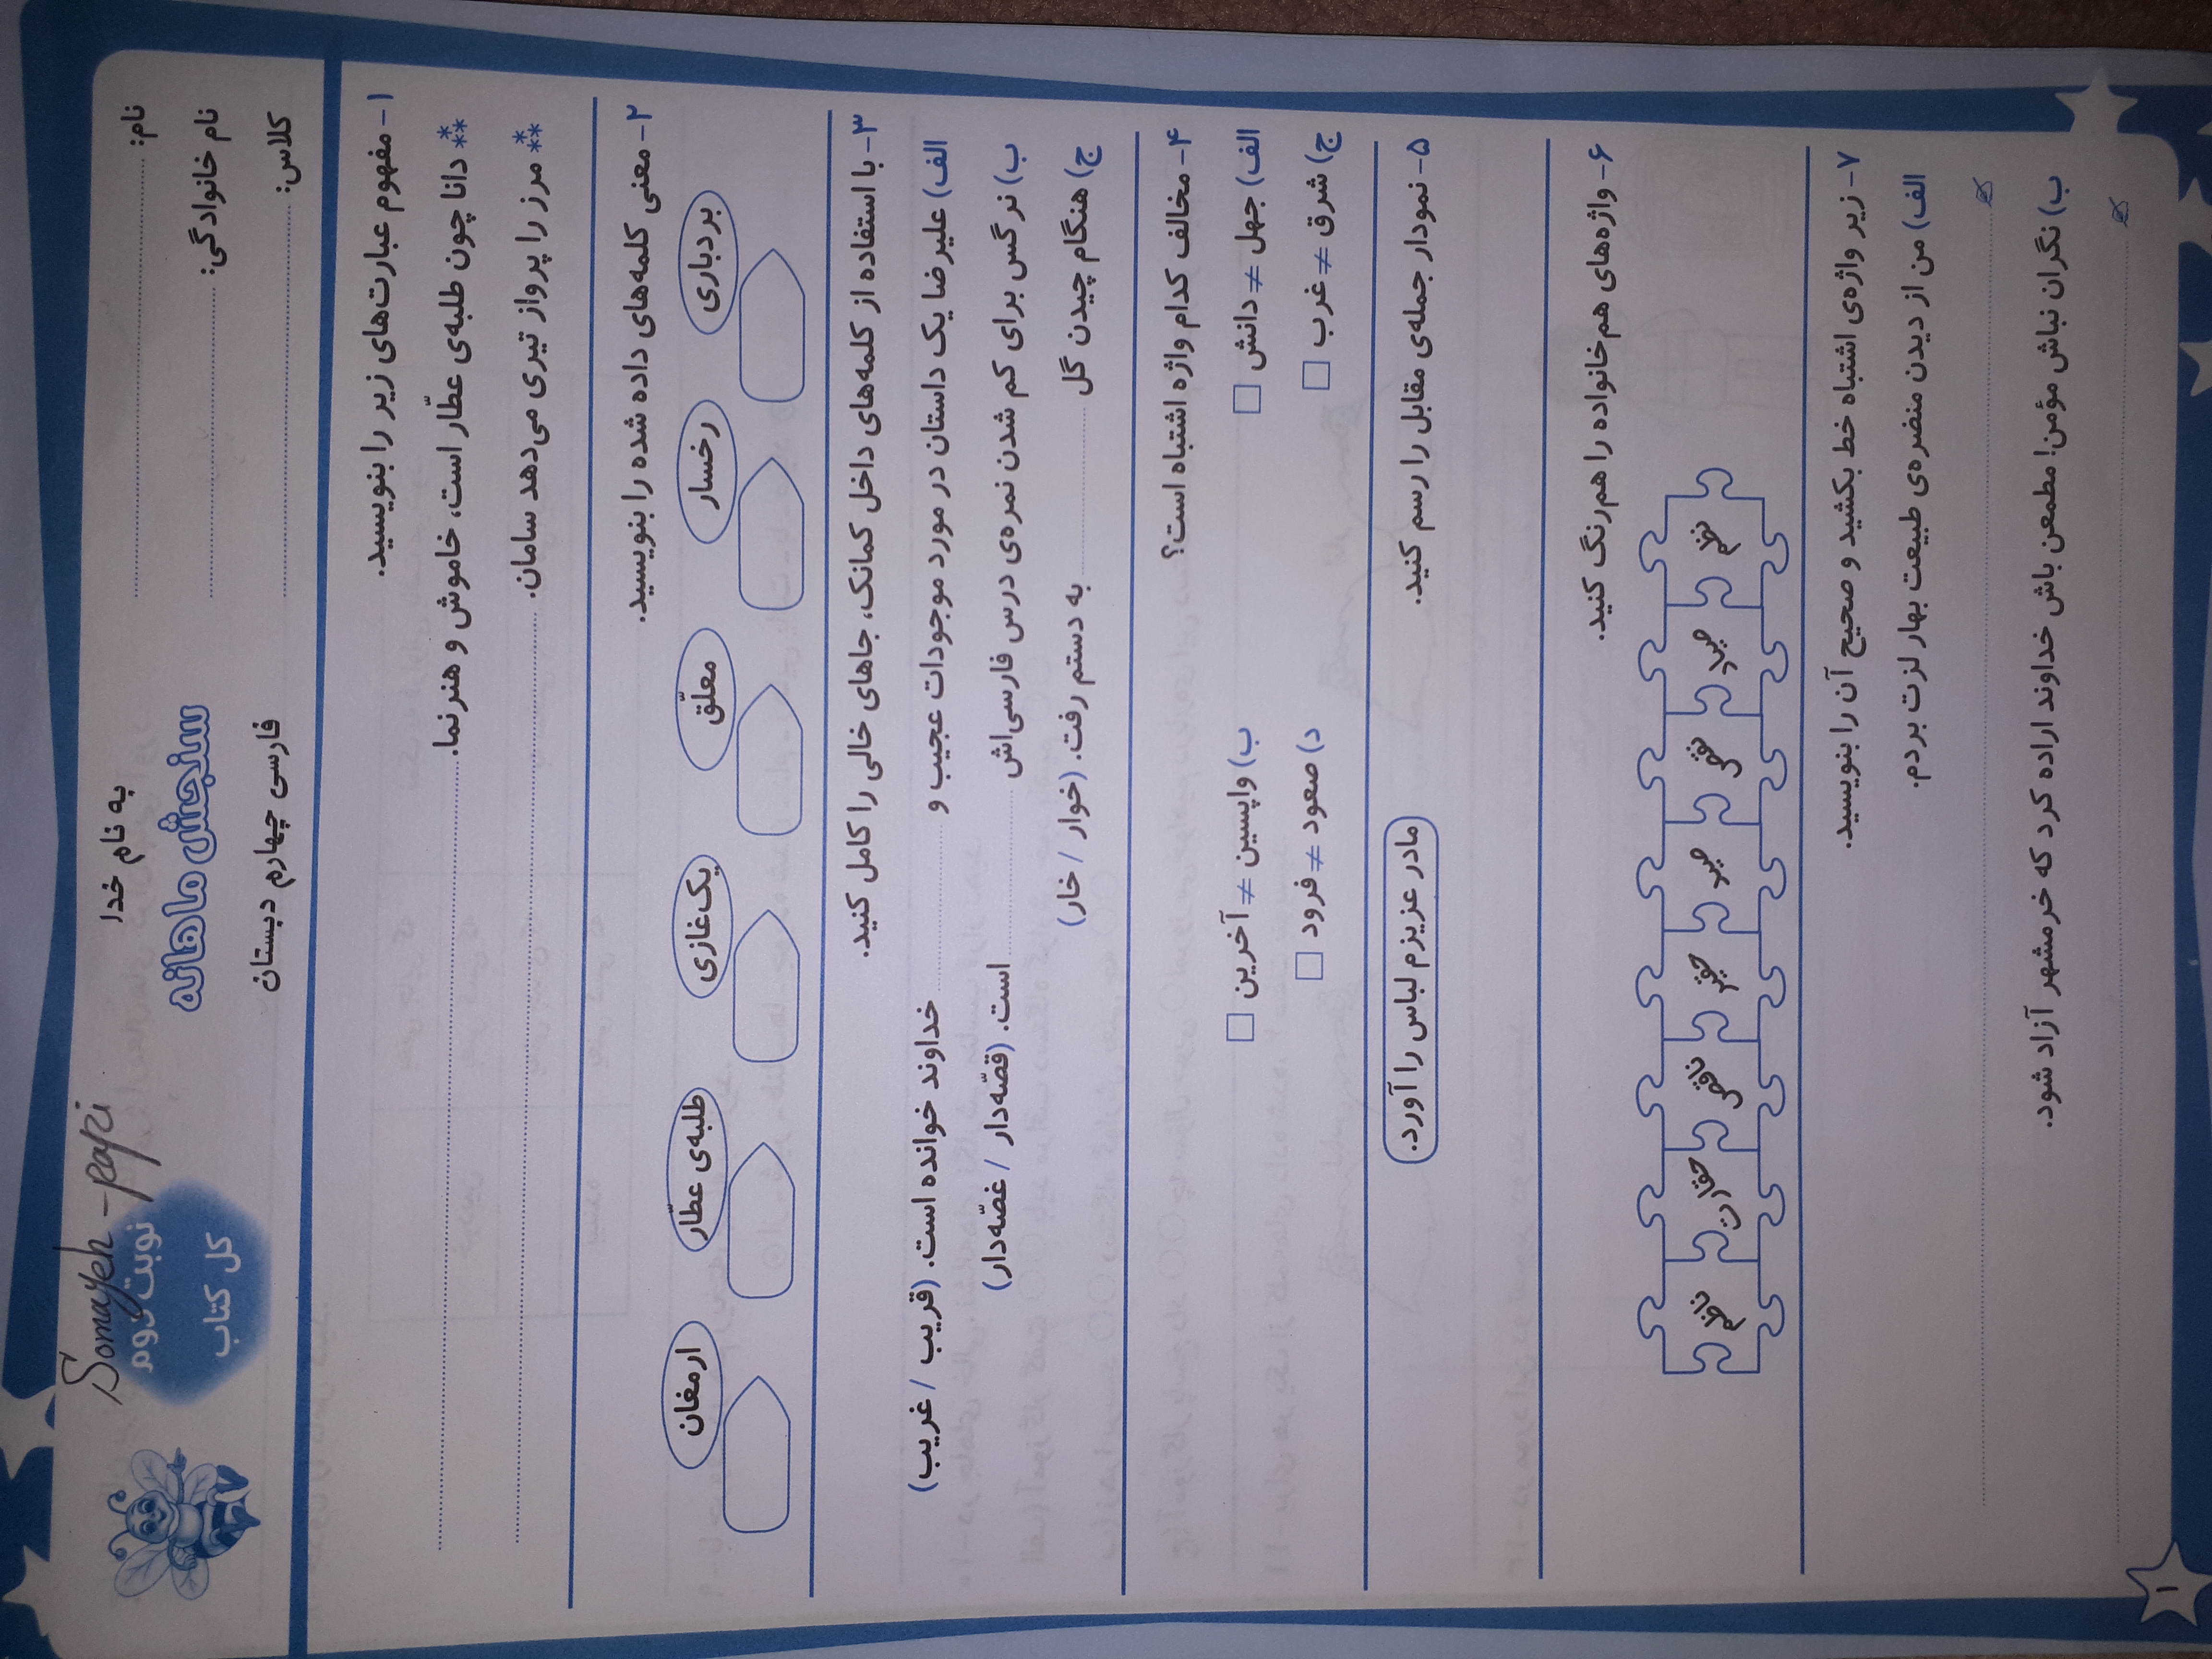 Somayeh - papi
به نام خدا
نام:
نوبت دوم
سنجش ماهانه
نام خانوادگی:
کل کتاب
فارسی چهارم دبستان
کلاس:
۱- مفهوم عبارت‌های زیر را بنویسید.
دانا چون طلبه‌ی عطّار است، خاموش و هنرنما.
مرز را پرواز تیری می‌دهد سامان.
۲- معنی کلمه‌های داده شده را بنویسید.
بردباری رخسار معلّق یک‌غازی طلبه‌ی عطّار ارمغان
۳- با استفاده از کلمه‌های داخل کمانک، جاهای خالی را کامل کنید.
الف) علیرضا یک داستان در مورد موجودات عجیب و خداوند خوانده است. (قریب / غریب)
ب) نرگس برای کم شدن نمره‌ی درس فارسی‌اش است. (قصّه‌دار / غصّه‌دار)
ج) هنگام چیدن گل به دستم رفت. (خوار / خار)
۴- مخالف کدام واژه اشتباه است؟
الف) جهل ≠ دانش □ ب) واپسین ≠ آخرین □
ج) شرق ≠ غرب □ د) صعود ≠ فرود □
۵- نمودار جمله‌ی مقابل را رسم کنید. مادر عزیزم لباس را آورد.
۶- واژه‌های هم‌خانواده را هم‌رنگ کنید.
نظم صیاد نقص صید حقیر ناقص حقارت ناظم
۷- زیر واژه‌ی اشتباه خط بکشید و صحیح آن را بنویسید.
الف) من از دیدن منضره‌ی طبیعت بهار لزت بردم.
ب) نگران نباش مؤمن! مطمعن باش خداوند اراده کرد که خرمشهر آزاد شود.
۱